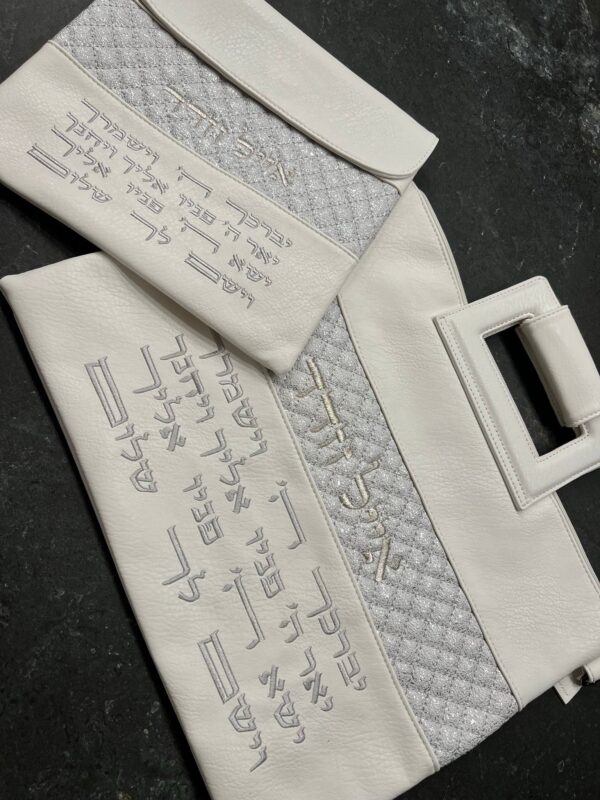 אייל
יברכך ה' וישמרך
יאר ה' פניו אליך ויחנך
ישא ה' פניו אליך
וישם לך שלום
אייל
יברכך ה' וישמרך
יאר ה' פניו אליך ויחנך
ישא ה' פניו אליך
וישם לך שלום